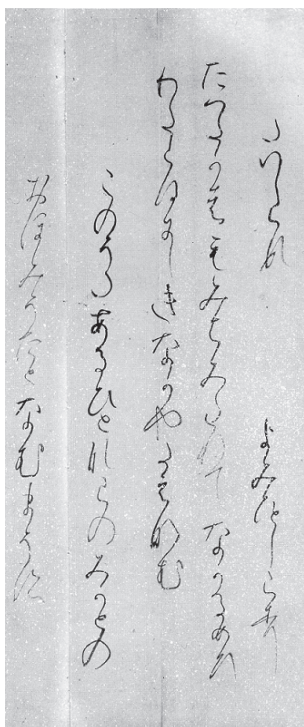 たいしらす　よみひとしらす
たつたかはもみちみたれてなかるめり
わたらはにしきなかやたえなむ
このうたあるひとならのみかとの
おほみうたとなむまうす